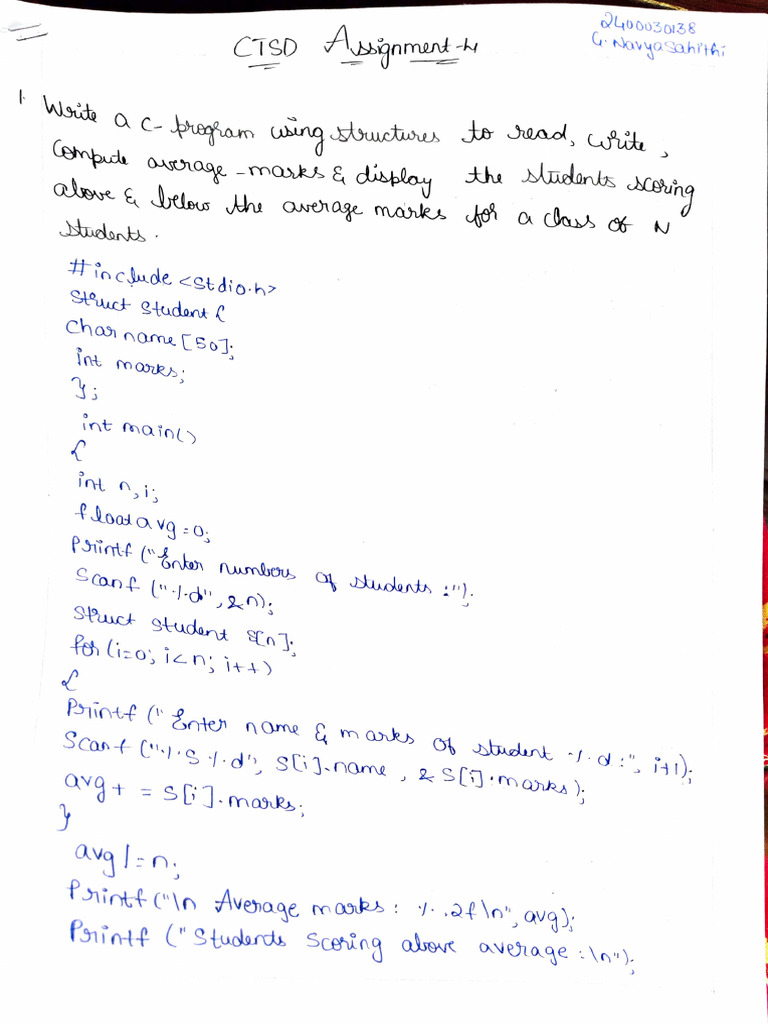 2400030138
G. NavyaSahithi
CTSD Assignment-4
1. Write a C-program using structures to read, write,
Compute average-marks & display the students scoring
above & below the average marks for a class of N
students.
#include <stdio.h>
Struct Student {
Char name [50];
int marks;
};
int main()
{
int n, i;
float avg = 0;
Printf ("Enter numbers of students :");
Scanf ("%d", &n);
Struct Student S[n];
for (i=0; i<n; i++)
{
Printf (" Enter name & marks of student %d :", i+1);
Scanf ("%s %d", S[i].name, & S[i].marks);
avg + = S[i].marks;
}
avg /= n;
Printf ("\n Average marks : %.2f \n", avg);
Printf ("Students Scoring above average :\n");